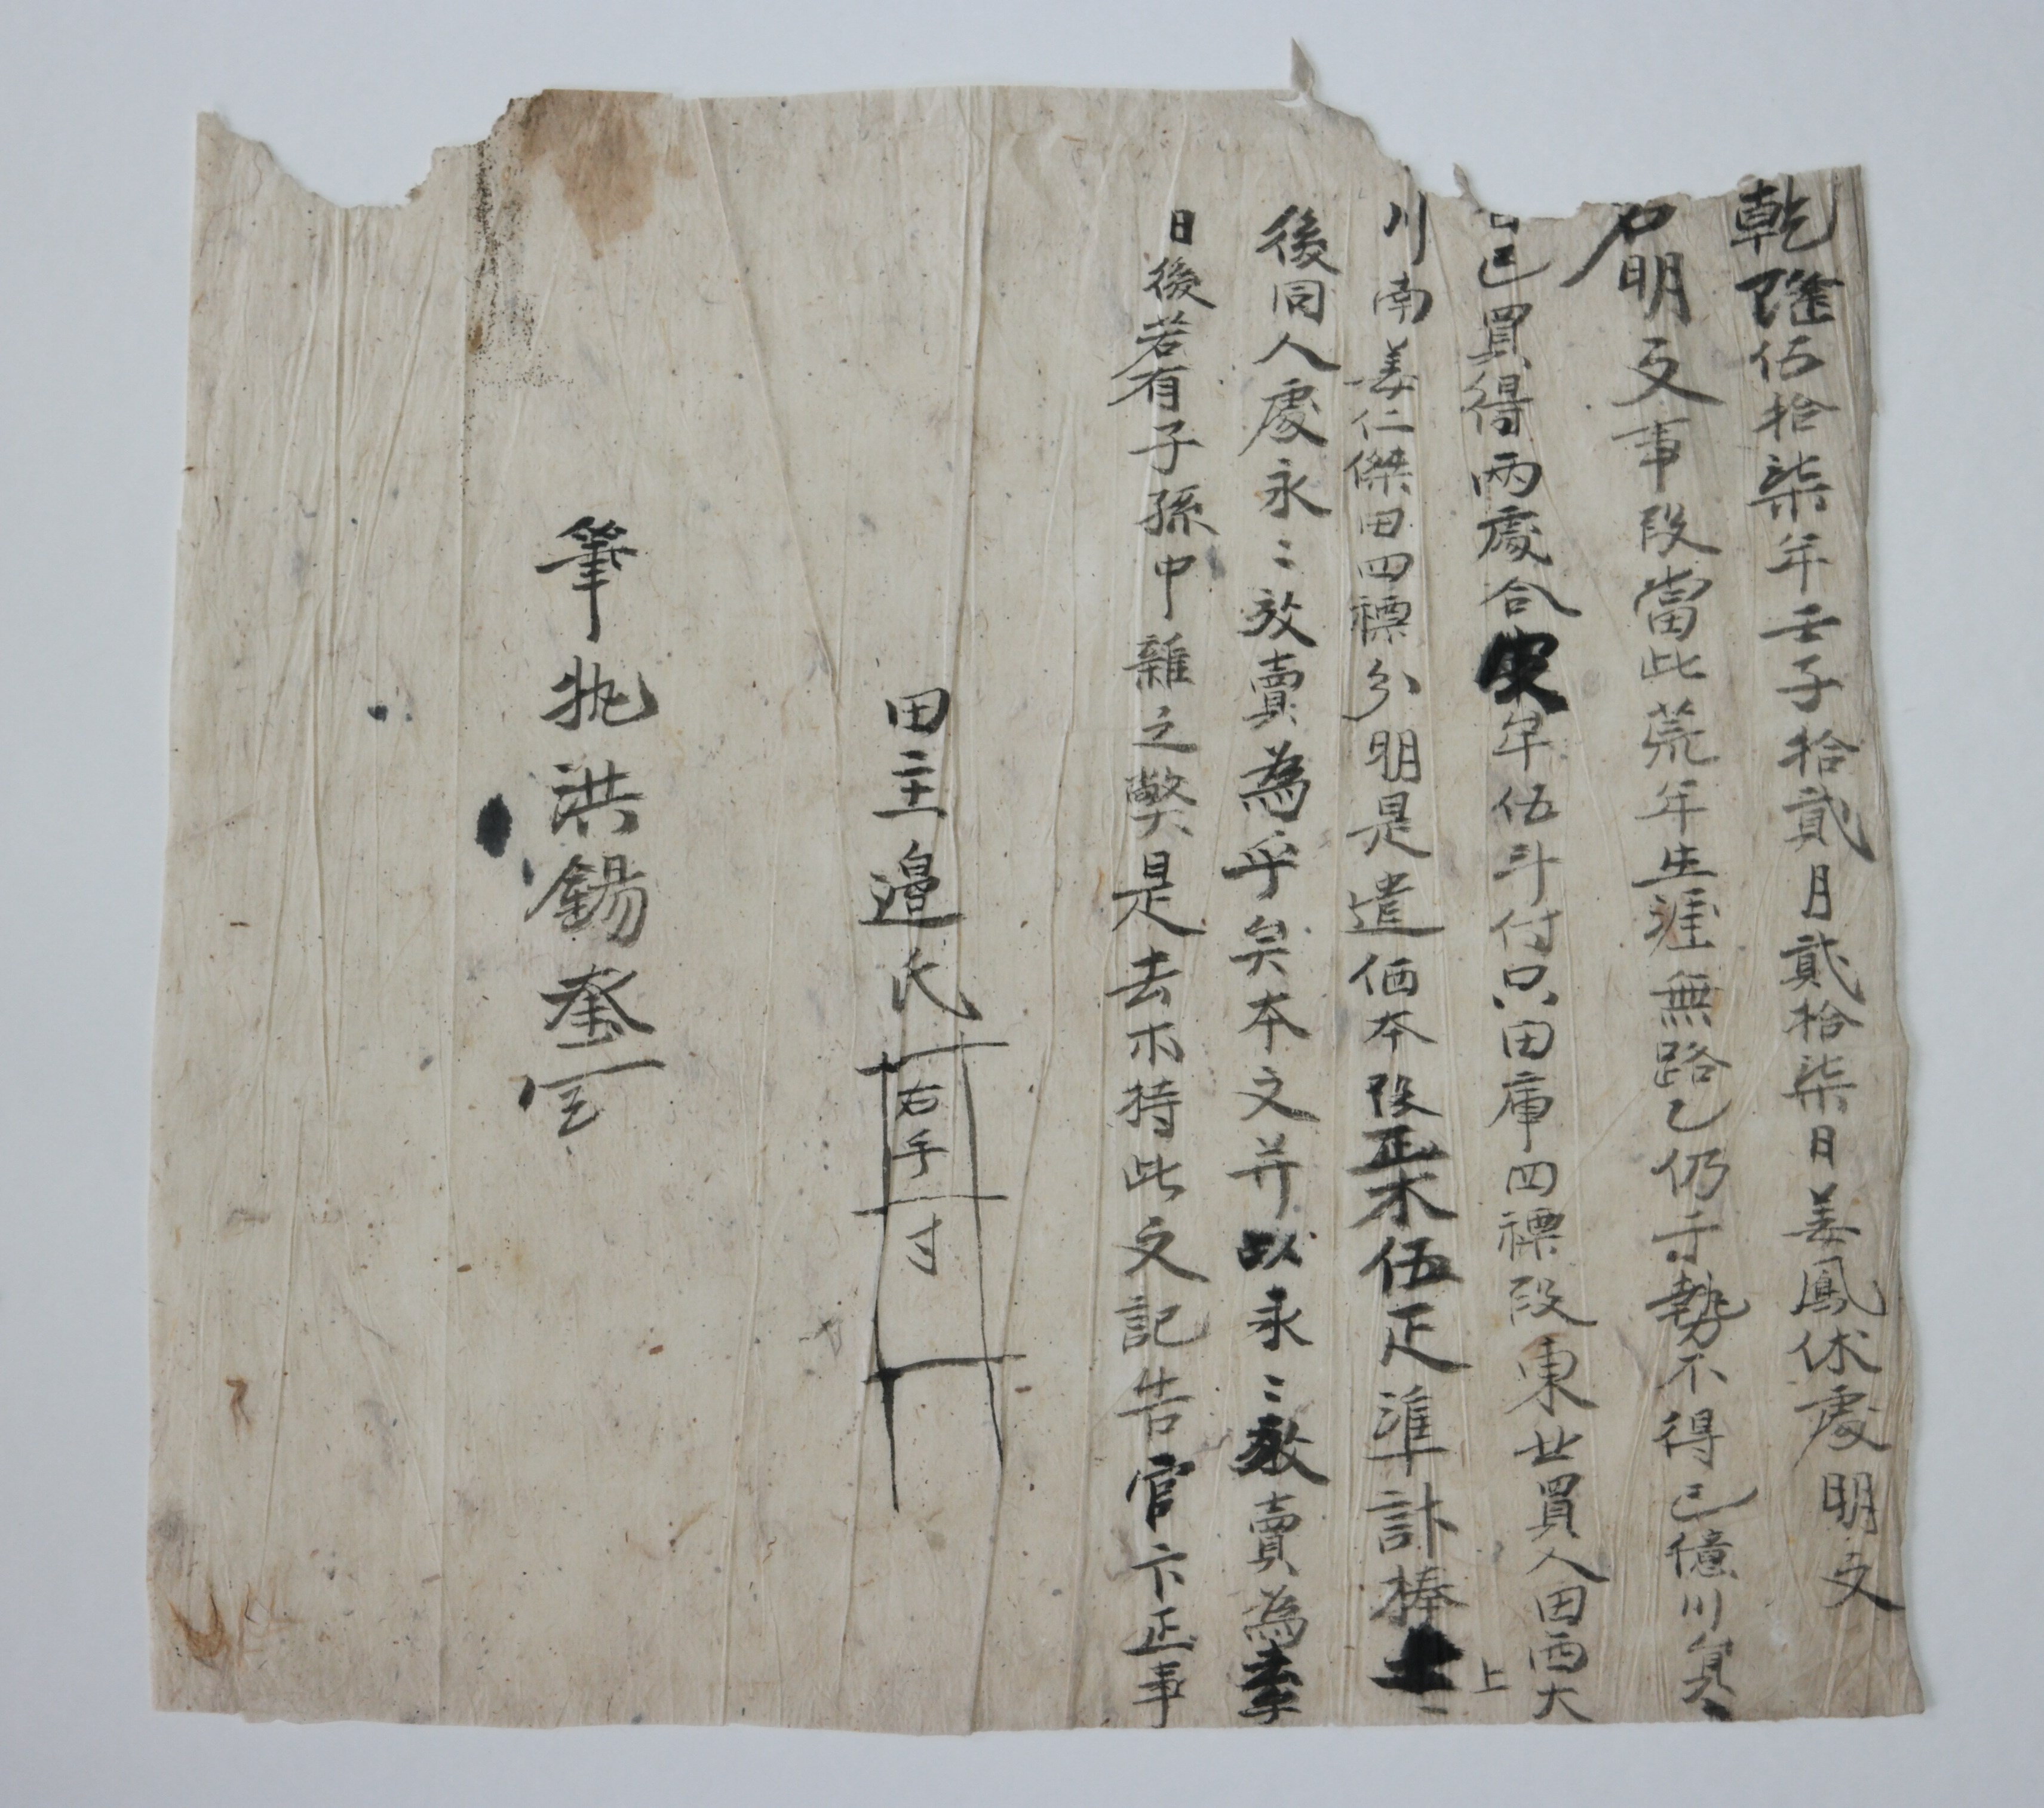 乾隆伍拾柒年壬子拾貳月貳拾柒日姜鳳休處明文
右明文事段當此荒年生涯無路乙仍于勢不得已億川員
已買得兩處合牟伍斗付只田庫四標段東北買人田西大
川南姜仁傑田四標分明是遣価本段正木伍疋準計捧上
後同人處永〻放賣為乎矣本文幷以永〻放賣為去乎
日後若有子孫中雜之弊是去示持此文記告官卞正事
田主邉氏
右手
寸
筆執洪錫奎